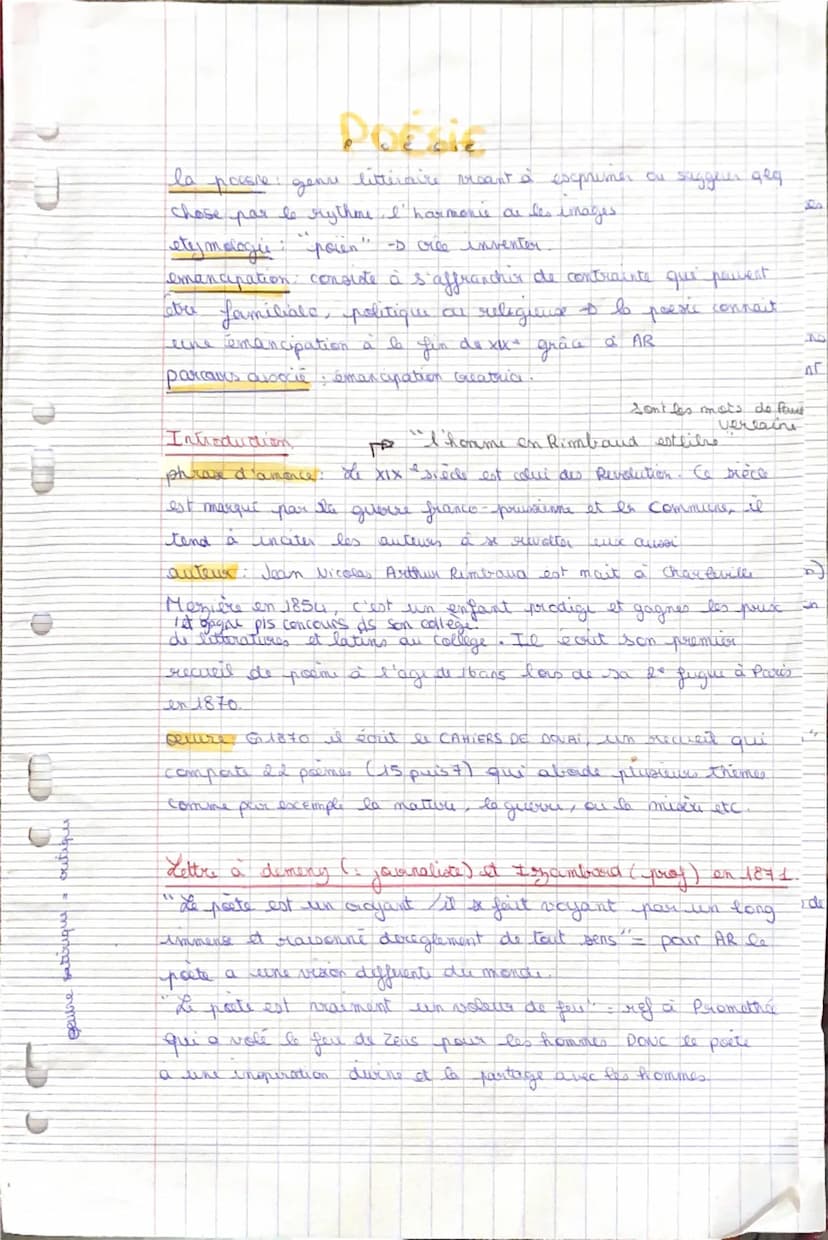 POÉSIE
la poésie : genre littéraire visant à exprimer ou suggerer qlq
chose par le rythme, l'harmonie ou les images
etymologie : "poien" → crée inventer.
emancipation : consiste à s'affranchir de contrainte qui peuvent
être familiale, politique ou religieuse → la poésie connait
une émancipation à la fin du XIXe grâce à AR
parcours associé : émancipation créatrice.
sont les mots de Paul
Verlaine
Introduction → "l'homme en Rimbaud est libre"
phrase d'amorce : Le XIXe siècle est celui des Revolution. Ce siècle
est marqué par la guerre franco-prussienne et la Commune, il
tend à inciter les auteurs à se revolter eux aussi
auteur : Jean Nicolas Arthur Rimbaud est mait à Charleville
Mezière en 1854, c'est un enfant prodige et gagnes les prix
et gagne pls concours ds son collège.
de litteratures et latins au collège. Il écrit son premier
recueil de poème à l'age de 16ans lors de sa 2e fugue à Paris
en 1870.
oeuvre En 1870 il écrit le CAHIERS DE DOUAI, un recueil qui
comporte 22 poèmes (15 puis 7) qui aborde plusieurs thèmes
comme par exemple la nature, la guerre, ou la misère etc.
Lettre à demeny (: journaliste) et Izambard (prof) en 1871.
"Le poète est un croyant / il se fait voyant par un long
immense et raisonné dereglement de tout sens" = pour AR le
poète a une vision differente du monde.
"Le poète est vraiment un voleur de feu" = ref à Promethé
qui a volé le feu de Zeus pour les hommes DONC le poète
a une inspiration divine et la partage avec les hommes.
satirique = critique